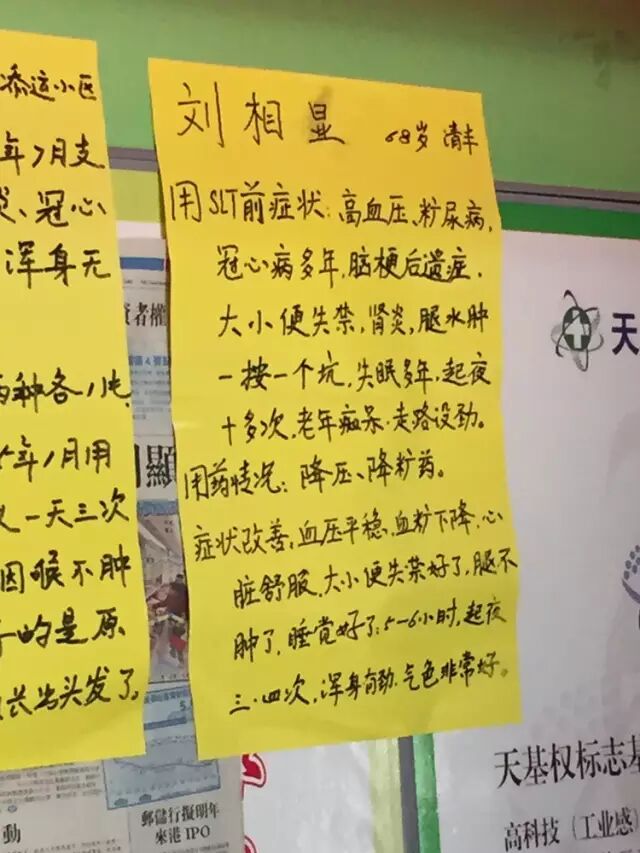 添运小区
年7月支
炎、冠心
浑身无
两种各1吨
年1月用
一天三次
因喉不肿
的是原
长出头发了。
刘相显 68岁 清丰
用SLT前症状:高血压、籵尿病,
冠心病多年,脑梗后遗症,
大小便失禁,肾炎,腿水肿
一按一个坑,失眠多年,起夜
十多次,老年痴呆,走路没劲。
用药情况:降压、降籵药。
症状改善,血压平稳,血籵下降,心
脏舒服,大小便失禁好了,腿不
肿了,睡觉好了:5-6小时,起夜
三.四次,浑身有劲.气色非常好。
資者權
顯
郵儲行擬明年
來港 IPO
動
天
天基权标志基
高科技(工业感)